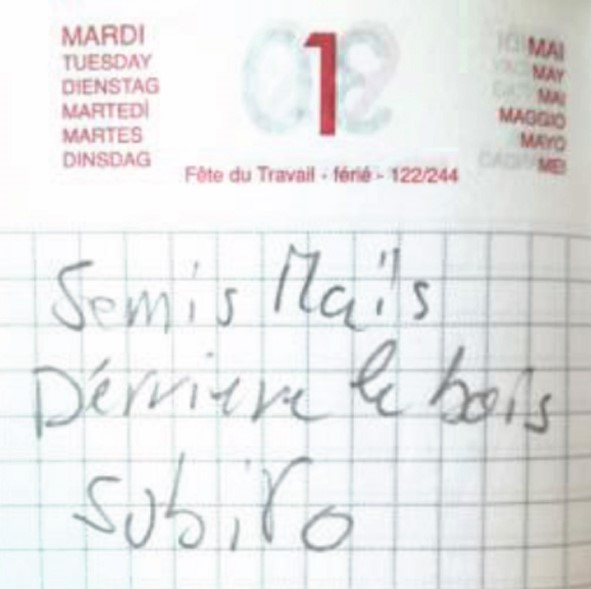 MARDI
TUESDAY
DIENSTAG
MARTEDÌ
MARTES
DINSDAG
1
MAI
MAY
MAI
MAGGIO
MAYO
MEI
Fête du Travail - férié - 122/244
Semis Maïs
Dérriere le bois
Subito